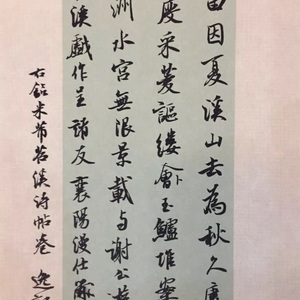 因夏溪山去為秋久賡
度采菱謳縷會玉鱸堆案
洲水宮無限景載与謝公遊
溪戲作呈諸友 襄陽漫仕黻
右臨米芾苕溪诗帖卷 逸